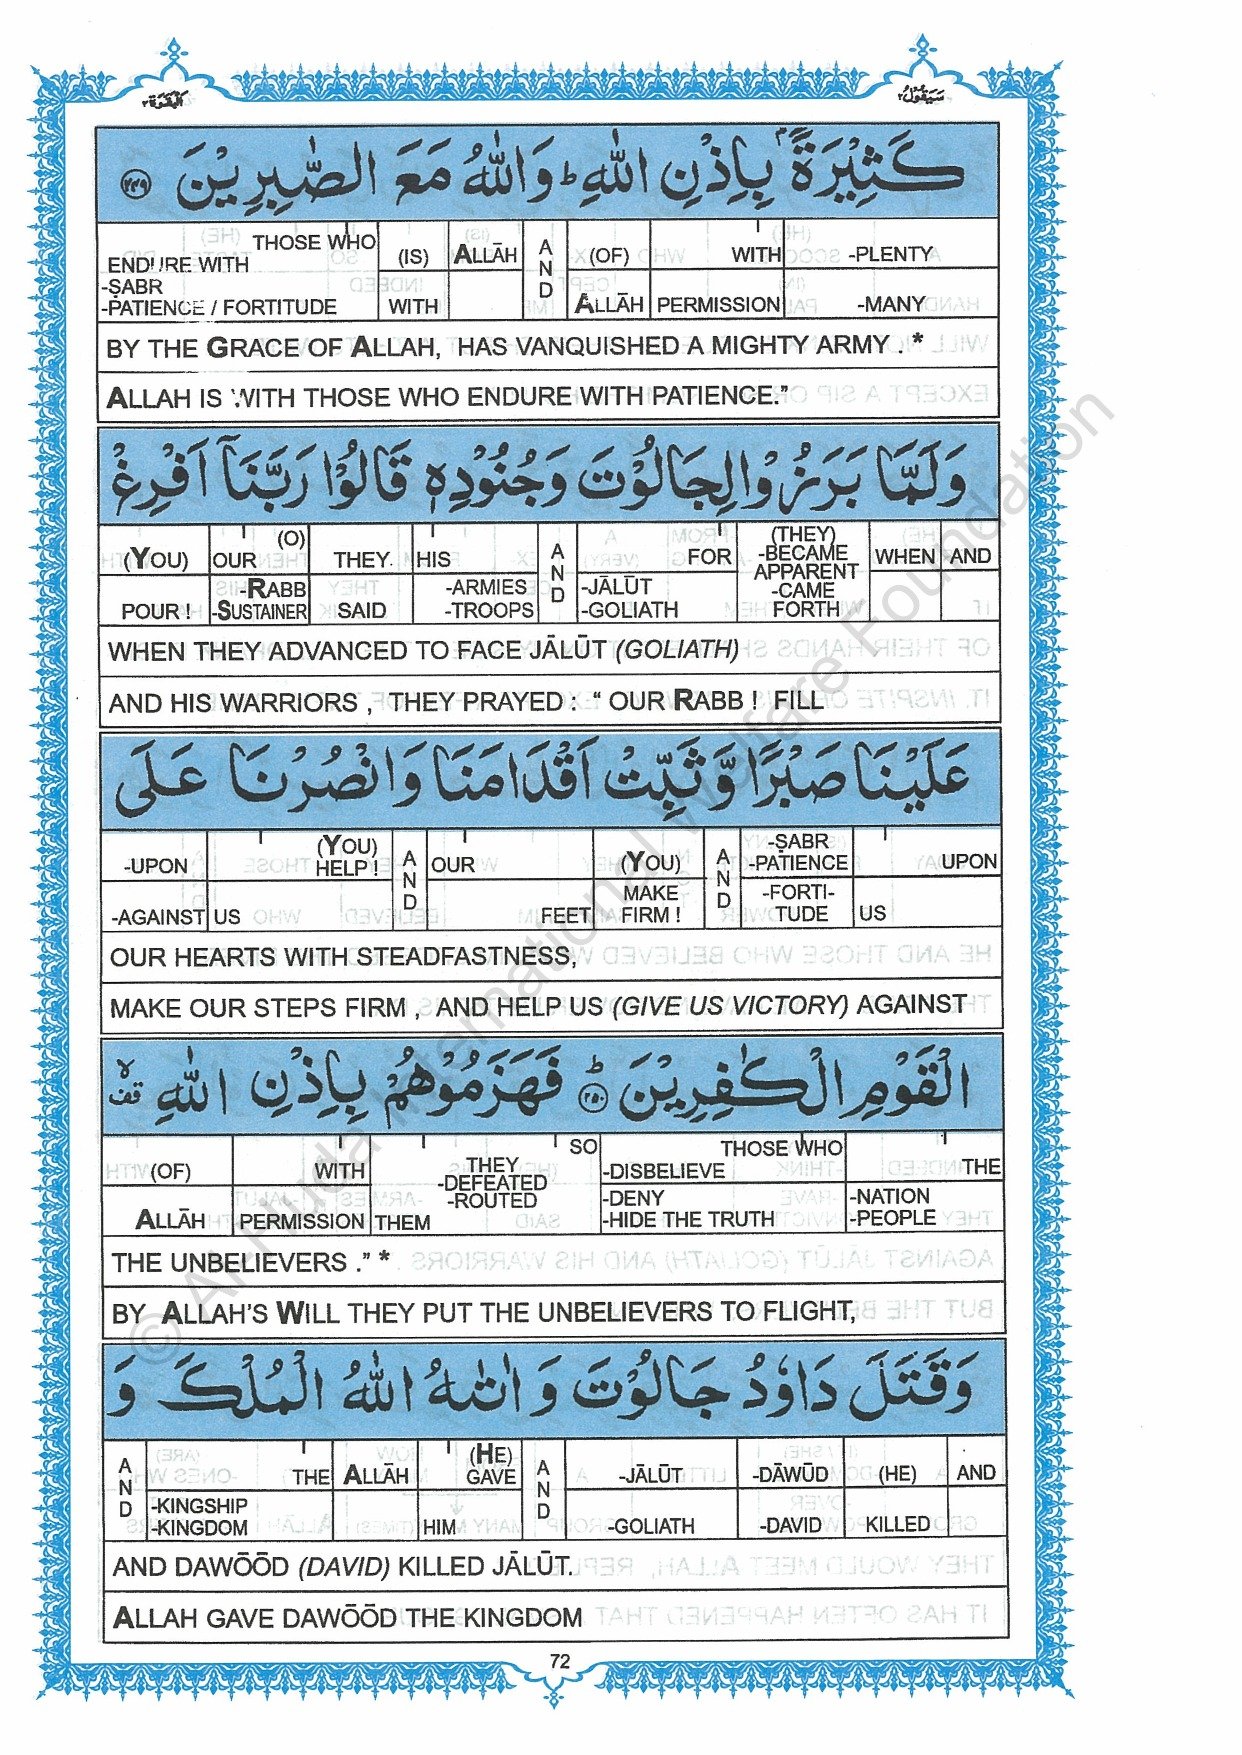 البقرة ٢
سيقول ٢
كَثِيْرَةًۢ بِاِذْنِ اللّٰهِ ؕ وَاللّٰهُ مَعَ الصّٰبِرِيْنَ ﴿٢٤٩﴾
THOSE WHO ENDURE WITH (IS) ALLĀH AND (OF) WITH -PLENTY
-ṢABR -PATIENCE / FORTITUDE WITH ALLĀH PERMISSION -MANY
BY THE GRACE OF ALLAH, HAS VANQUISHED A MIGHTY ARMY . *
ALLAH IS WITH THOSE WHO ENDURE WITH PATIENCE.”
وَلَمَّا بَرَزُوْا لِجَالُوْتَ وَجُنُوْدِهٖ قَالُوْا رَبَّنَاۤ اَفْرِغْ
(YOU) OUR (O) THEY HIS AND FOR (THEY) -BECAME APPARENT WHEN AND
POUR ! -RABB -SUSTAINER SAID -ARMIES -TROOPS -JĀLŪT -GOLIATH -CAME FORTH
WHEN THEY ADVANCED TO FACE JĀLŪT (GOLIATH)
AND HIS WARRIORS , THEY PRAYED : “ OUR RABB ! FILL
عَلَيْنَا صَبْرًا وَّثَبِّتْ اَقْدَامَنَا وَانْصُرْنَا عَلَى
-UPON (YOU) HELP ! AND OUR (YOU) AND -ṢABR -PATIENCE UPON
-AGAINST US FEET MAKE FIRM ! -FORTI-TUDE US
OUR HEARTS WITH STEADFASTNESS,
MAKE OUR STEPS FIRM , AND HELP US (GIVE US VICTORY) AGAINST
الْقَوْمِ الْكٰفِرِيْنَ ﴿٢٥٠﴾ؕ فَهَزَمُوْهُمْ بِاِذْنِ اللّٰهِ ۙ قف
(OF) WITH THEY -DEFEATED -ROUTED SO THOSE WHO -DISBELIEVE THE
ALLĀH PERMISSION THEM -DENY -HIDE THE TRUTH -NATION -PEOPLE
THE UNBELIEVERS .” *
BY ALLAH’S WILL THEY PUT THE UNBELIEVERS TO FLIGHT,
وَقَتَلَ دَاوٗدُ جَالُوْتَ وَاٰتٰىهُ اللّٰهُ الْمُلْكَ وَ
AND THE ALLĀH (HE) GAVE AND -JĀLŪT -DĀWŪD (HE) AND
-KINGSHIP -KINGDOM HIM -GOLIATH -DAVID KILLED
AND DAWŌŌD (DAVID) KILLED JĀLŪT.
ALLAH GAVE DAWŌŌD THE KINGDOM
72
© Al-Huda International Welfare Foundation